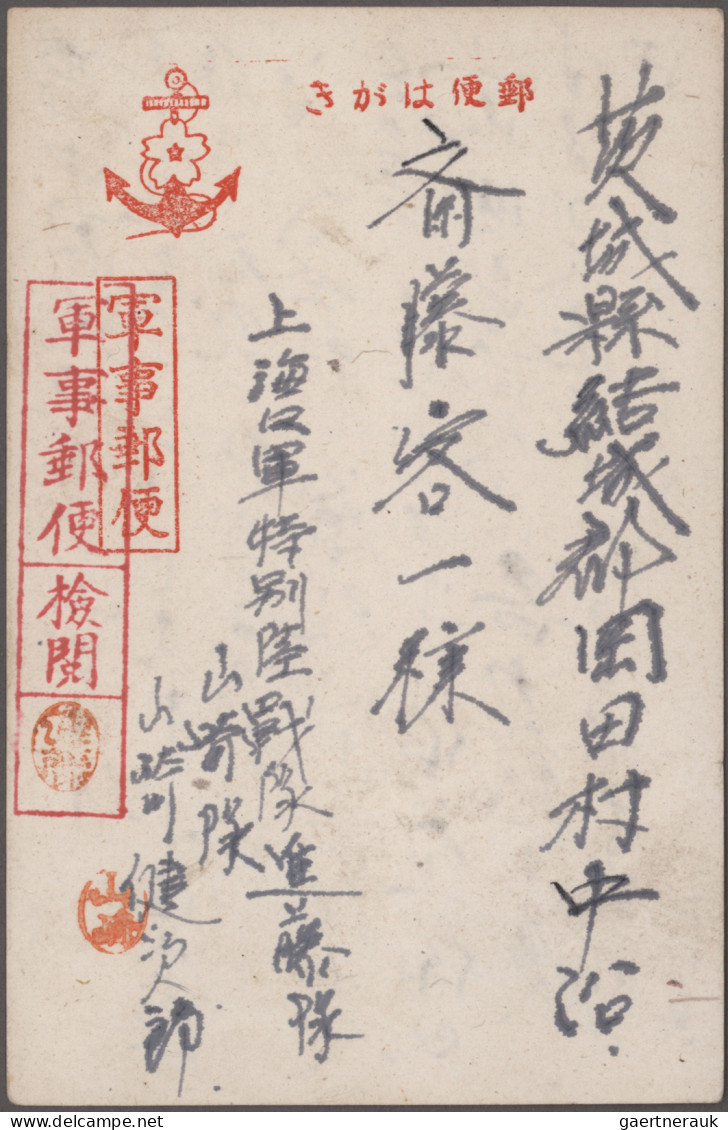 郵便はがき
茨城縣結城郡岡田村中沼
斉藤容一様
上海海軍特別陸戰隊進藤隊
山崎隊
山 健次郎
軍事郵便
軍事郵便
檢閲
gaertnerauk